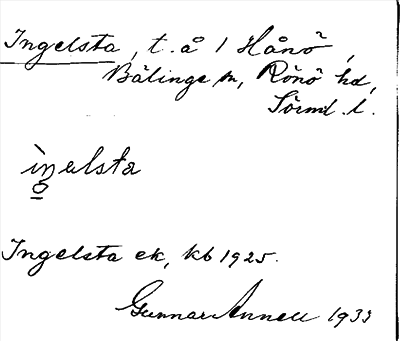 Ingelsta, t. å / Hånö,
Bälinge sn, Rönö hd,
Södml. l.
ìŋelsta
Ingelsta ek, kb 1925.
Gunnar Annell 1933